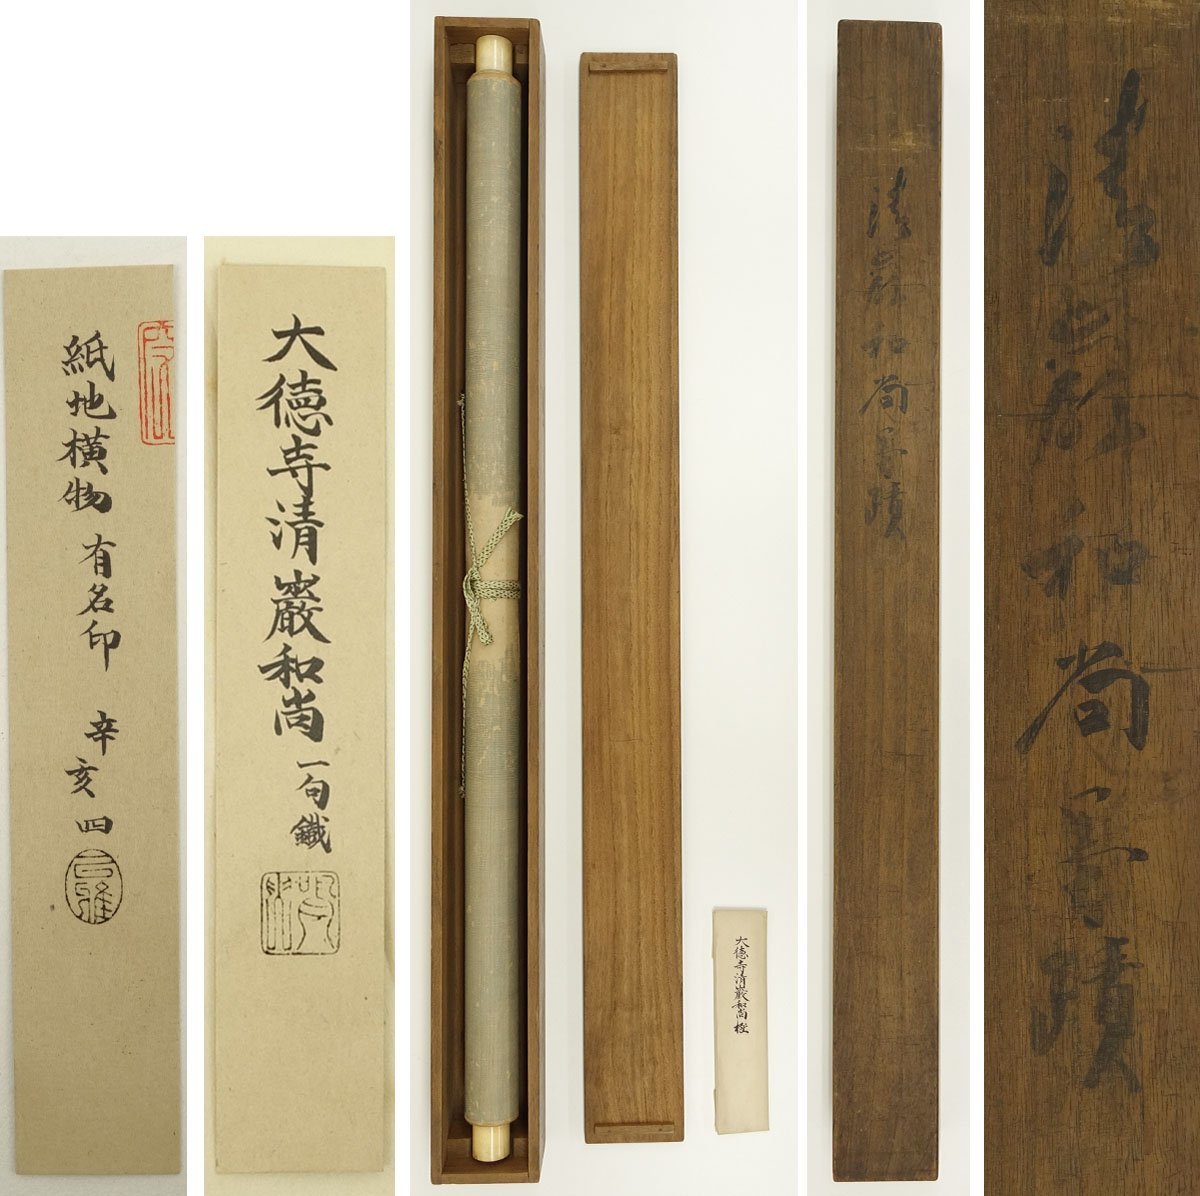 紙地横物 有名印 辛亥四
大徳寺清巖和尚 一句 鐵
大徳寺清巖和尚 極
清岩和尚墨蹟
清岩和尚墨蹟